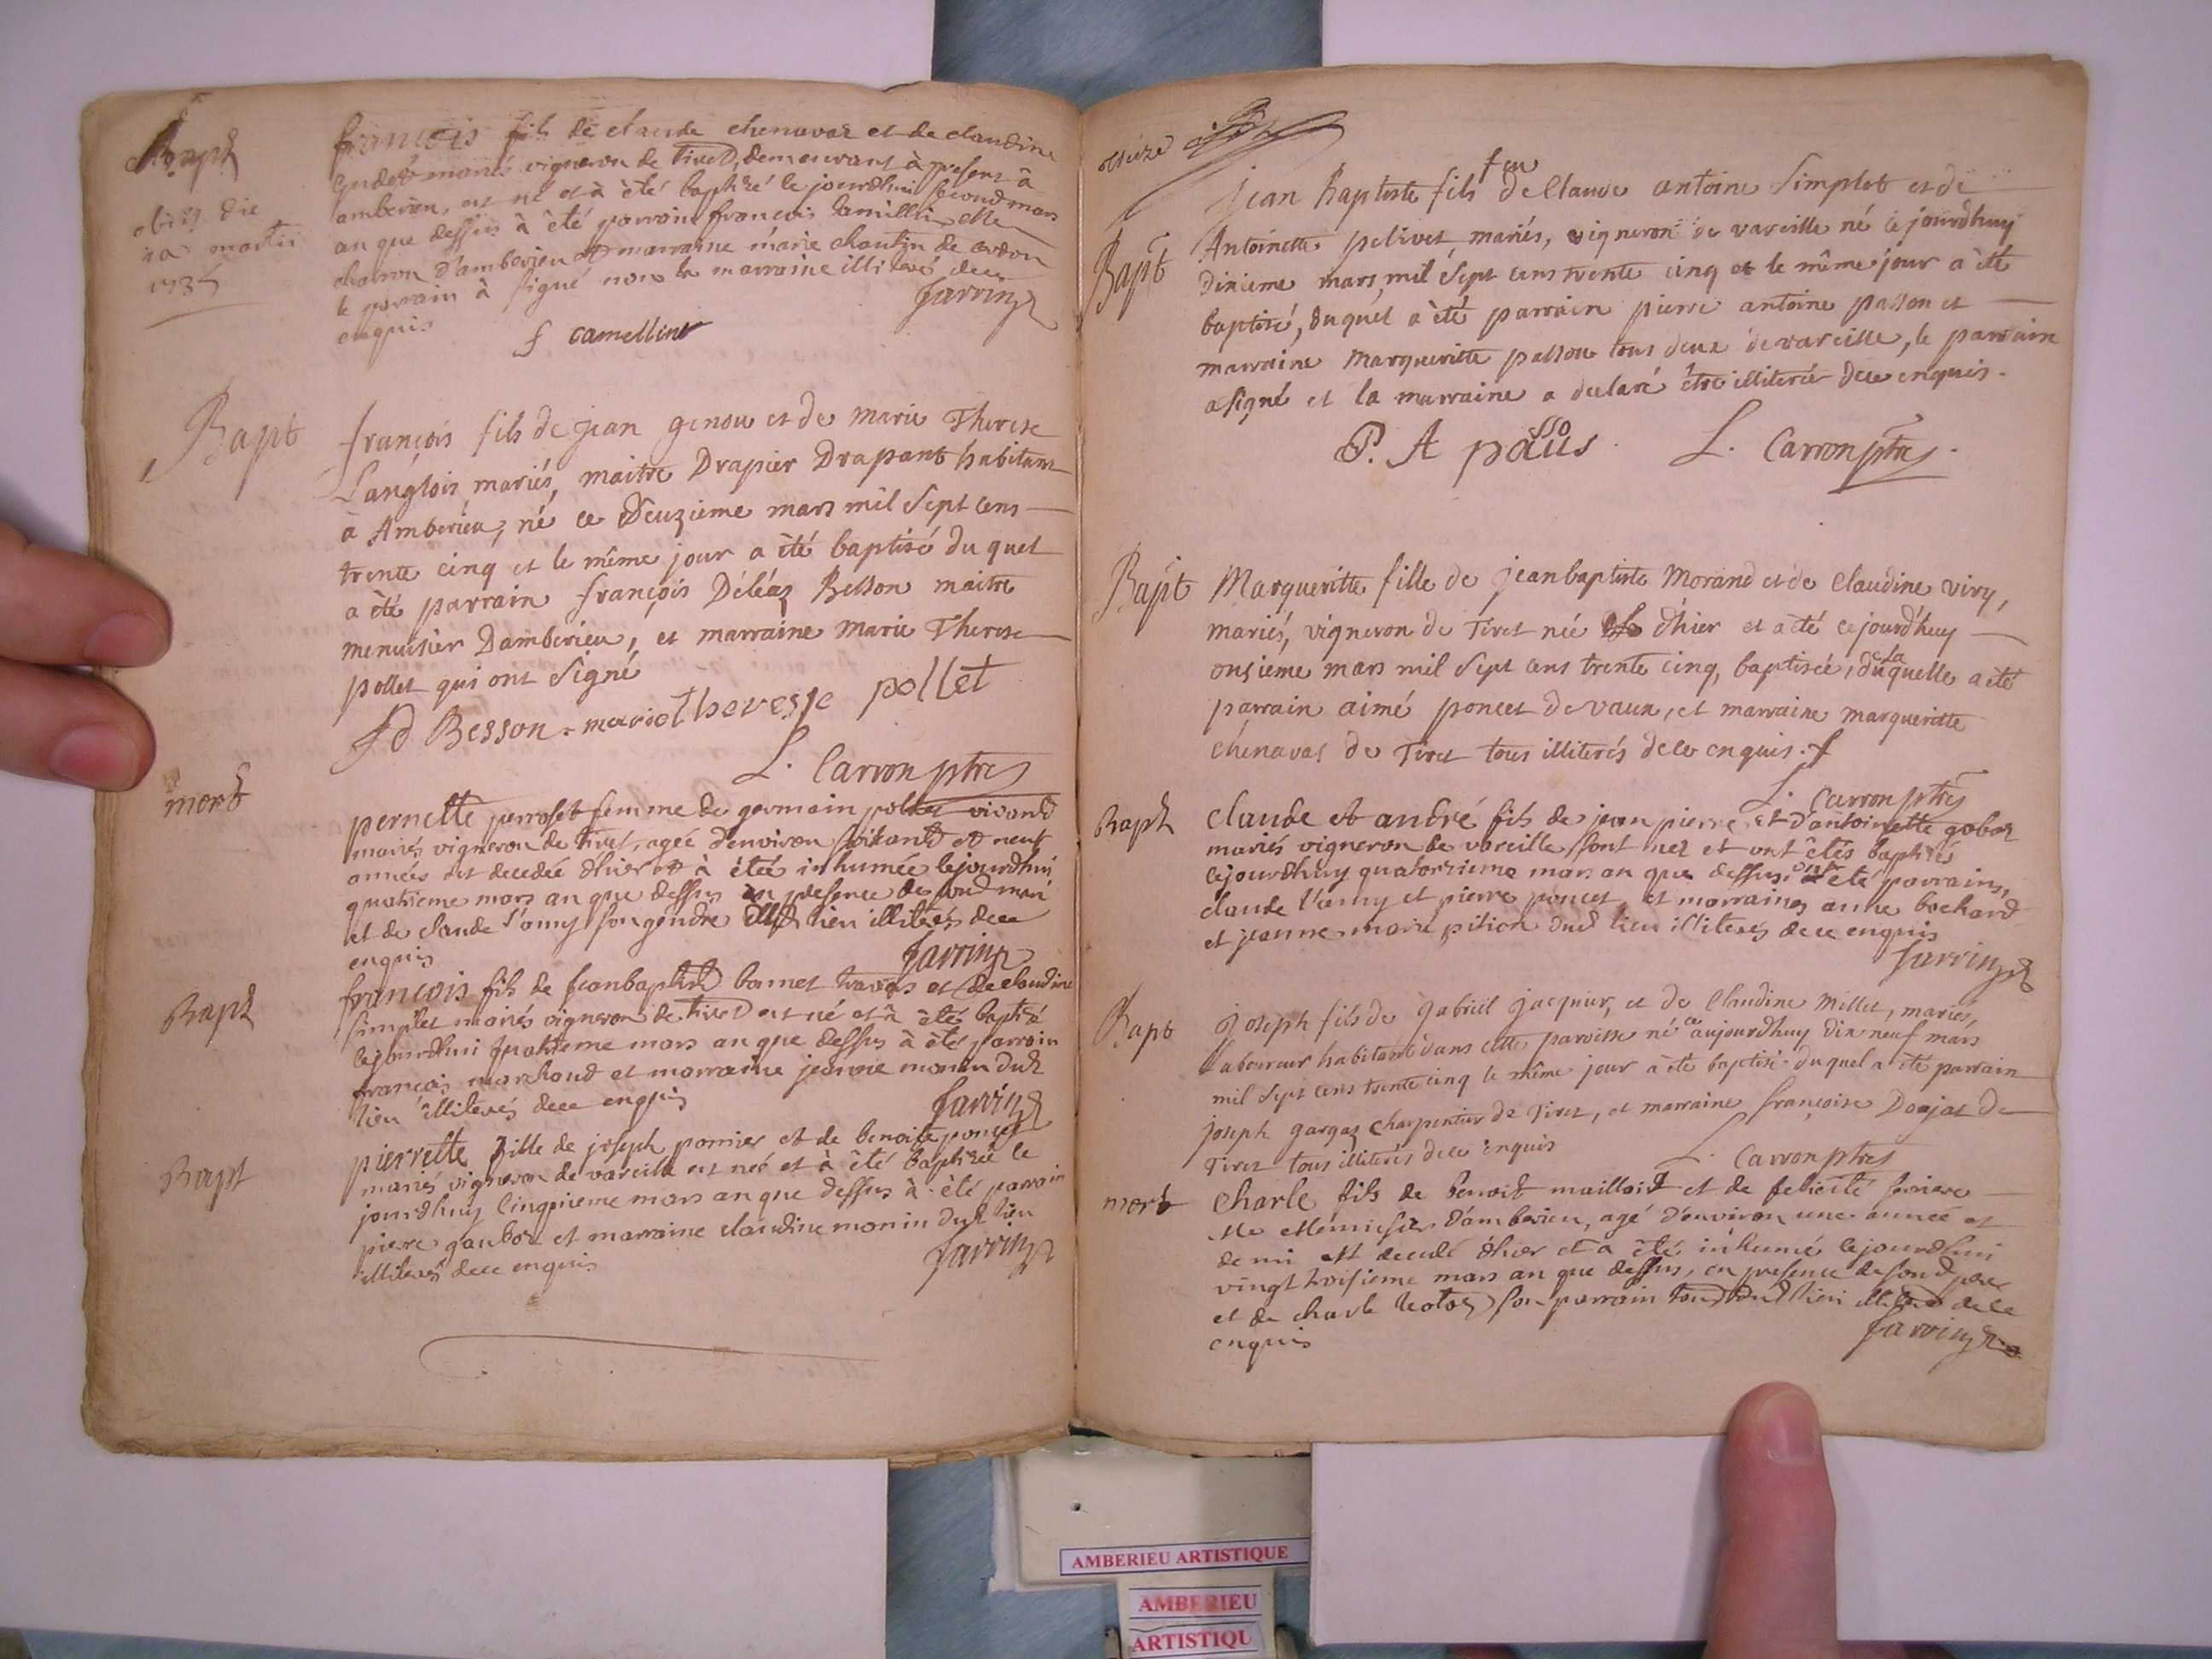 Bapt
obiit die
martii
1735
francois fils de claude chenavaz et de claudine
mariés vigneron de tiret, demeurant à present à
amberieu, est né et à èté baptizé le jourdhui second mars
an que dessus à èté parrain françois Camellin
charon d'amberieu et marraine marie chantin de
le parrain à signé non la marraine illiteré de ce
enquis
Jarrin
f camellin
Bapt
françois fils de jean genou et de Marie Therese
Langlois mariés, maitre Drapier Drapant habitant
à Amberieu, né ce deuzieme mars mil sept cens
trente cinq et le même jour a èté baptisé du quel
a èté parrain françois Déléaz Besson maitre
menuisier Damberieu, et marraine Marie Therese
pollet qui ont signé
fd Besson - marie theresse pollet
L. Carron ptre
mort
pernette perroset femme de germain pollet vivand
mariés vigneron de tiret, agée d'environ soixante et neuf
années est decedée d'hier et à étée inhumée le jourdhui
quatrieme mars an que dessus en presence de sond mari
et de claude son gendre dud lieu illiterés de ce
enquis
Jarrin
Bapt
françois fils de jeanbaptiste et de claudine
simplet mariés vigneron de tiret est né et à èté baptizé
le jourdhui quatrieme mars an que dessus à èté parrain
françois marchand et marraine jeanne monin dud
lieu illiterés de ce enquis
Jarrin
Bapt
pierrette fille de joseph pomier et de benoite poncet
mariés vigneron de vareille est neé et à èté baptizée le
jourdhuy cinquieme mars an que dessus à èté parrain
piere gauboz et marraine claudine monin dud lieu
illiterés de ce enquis
Jarrin
onze
Bapt
jean Baptiste fils feu de Claude antoine Simplet et de
Antoinette pelivet mariés, vigneron de vareille né ce jourdhuy
Dixieme mars mil sept cens trente cinq et le même jour a èté
baptisé, duquel a èté parrain pierre antoine passon et
marraine Margueritte passon tous deux de vareille, le parrain
a signé et la marraine a declaré être illiterée de ce enquis.
P. A passo L. Carron ptre
Bapt
Margueritte fille de jeanbaptiste Morand et de Claudine viry,
mariés, vigneron de Tiret née d'hier et a èté cejourd'huy
onsieme mars mil sept cens trente cinq, baptisée, de la quelle a èté
parrain aimé poncet de vaux, et marraine margueritte
chenavas de Tiret tous illiterés de ce enquis.
L. Carron ptre
Bapt
claude et andré fils de jean pierre et d'antoinette goboz
mariés vigneron de vareille sont nez et ont étés baptisés
cejourdhuy quatorzieme mars an que dessus ont été parrains,
claude et pierre poncet, et marraines anne bochard
et jeanne marie pition dud lieu illiterés de ce enquis
Jarrin
Bapt
Joseph fils de Gabriel jacquier, et de Claudine Millet, mariés,
laboureur habitant dans cette paroisse né ce aujourdhuy dix neuf mars
mil sept cens trente cinq le même jour a èté baptisé duquel a èté parrain
joseph gargaz charpentier de Tiret, et marraine françoise Doujat de
Tiret tous illiterés de ce enquis
L. Carron ptre
mort
Charle fils de benoit mailland et de felicité
Me Menuisier d'amberieu, agé d'environ une année et
demi est decedé d'hier et a èté inhumé le jourdhui
vingt troisieme mars an que dessus, en presence de sond pere
et de charle son parrain tous dud lieu illiterés de ce
enquis
Jarrin
AMBERIEU ARTISTIQUE
AMBERIEU
ARTISTIQU